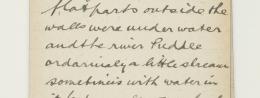 flat parts outside the
walls were under water
and the river Puddle
ordarinaly a little stream
sometimes with water in